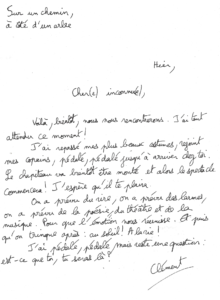 Sur un chemin,
à côté d'un arbre
Hier,
Cher(e) inconnu(e),
Voilà, bientôt, nous nous rencontrerons. J'ai tant
attendu ce moment!
J'ai repassé mes plus beaux costumes, rejoint
mes copains, pédalé, pédalé jusqu'à arriver chez toi.
Le chapiteau va bientôt être monté et alors le spectacle
commencera! J'espère qu'il te plaira.
On a prévu du rire, on a prévu des larmes,
on a prévu de la poésie, du théâtre et de la
musique. Pour que l'émotion nous réunisse. Et puis
qu'on trinque après: au soleil! A la vie!
J'ai pédalé, pédalé, mais reste une question:
est-ce que toi, tu seras là?
Clément